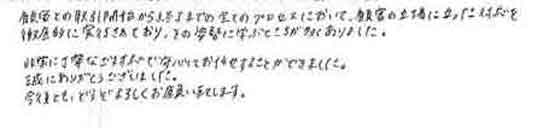 顧客との取引開始から終了までの全てのプロセスにおいて、顧客の立場に立った対応を
徹底的に実行されており、その姿勢に学ぶところが多くありました。
非常に丁寧な対応で安心してお任せすることができました。
誠にありがとうございました。
今後とも、どうぞよろしくお願い致します。